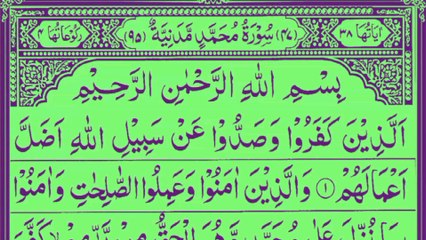 اٰيَاتُهَا ٣٨ (٤٧) سُوْرَةُ مُحَمَّدٍ مَّدَنِيَّةٌ (٩٥) رُكُوْعَاتُهَا ٤
بِسْمِ اللّٰهِ الرَّحْمٰنِ الرَّحِيْمِ
اَلَّذِيْنَ كَفَرُوْا وَصَدُّوْا عَنْ سَبِيْلِ اللّٰهِ اَضَلَّ
اَعْمَالَهُمْ ۝١ وَالَّذِيْنَ اٰمَنُوْا وَعَمِلُوا الصّٰلِحٰتِ وَاٰمَنُوْا